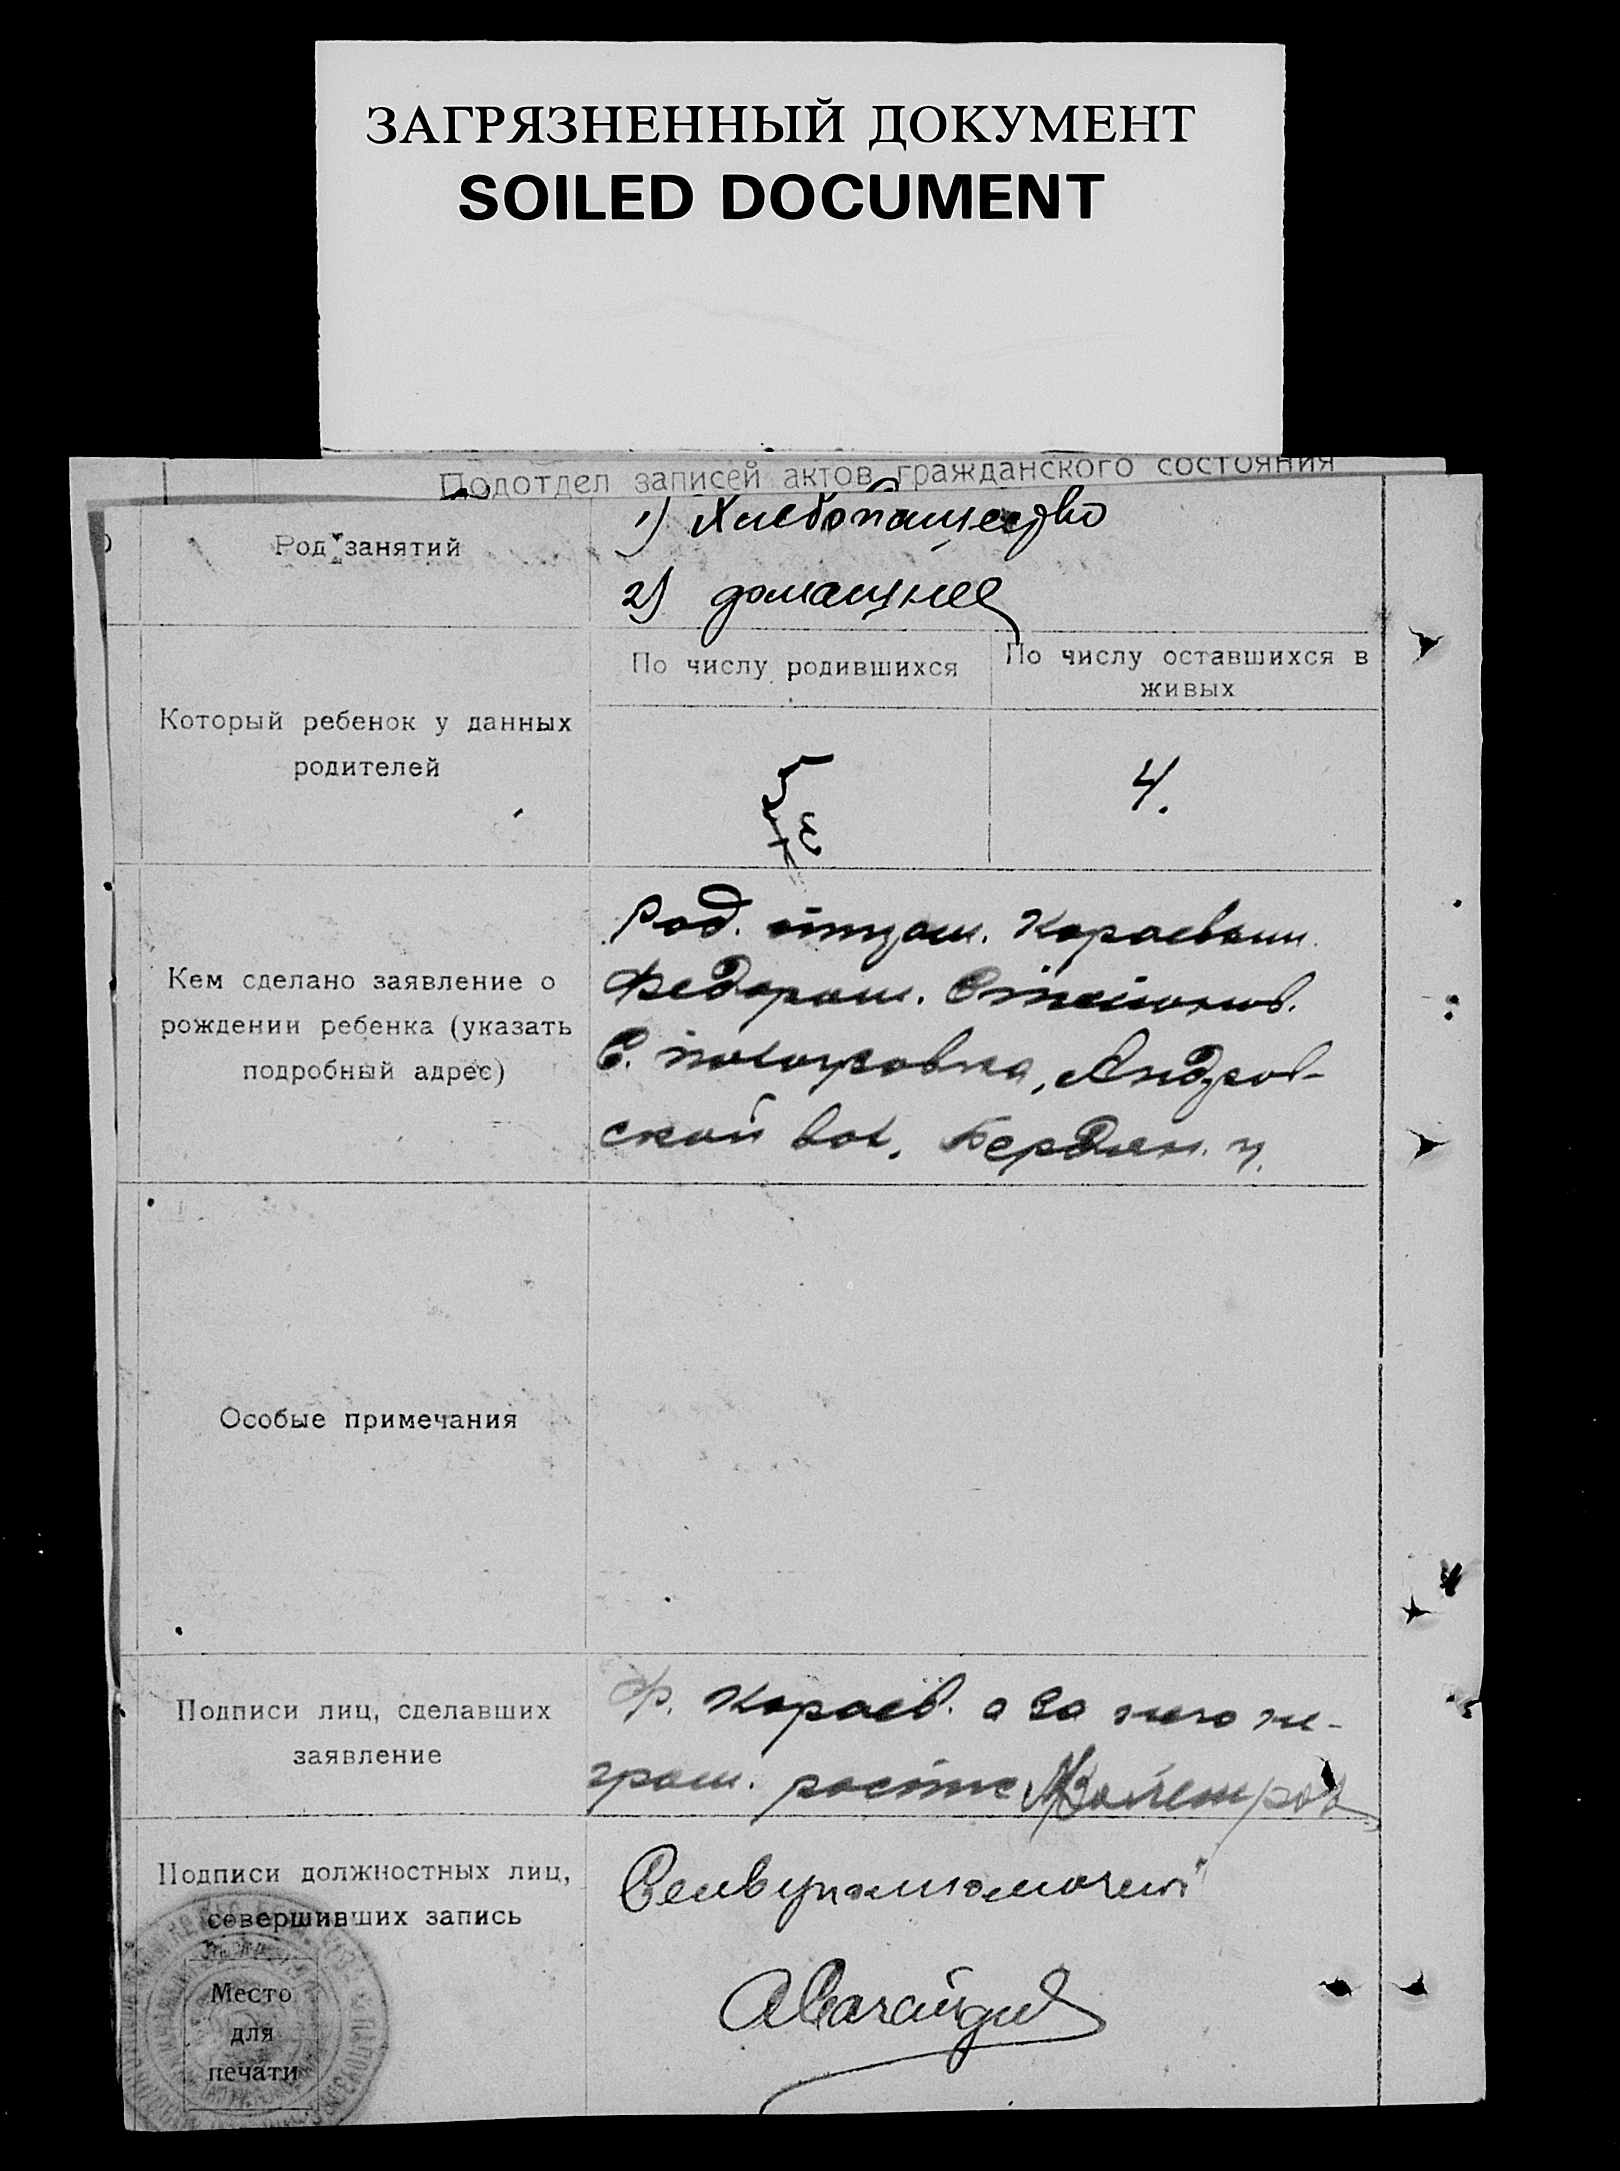 ЗАГРЯЗНЕННЫЙ ДОКУМЕНТ
SOILED DOCUMENT
Подотдел записей актов гражданского состояния
Род занятий
1) Хлебопашество
2) домашнее
Который ребенок у данных
родителей
По числу родившихся
По числу оставшихся в
живых
5
4.
Кем сделано заявление о
рождении ребенка (указать
подробный адрес)
Род. отцом. Караевым
Федором. Степанов.
С. Андров-
ской вол. Бердян. у.
Особые примечания
Подписи лиц, сделавших
заявление
Ф. Караев. а за него не-
грам. расписа
Подписи должностных лиц,
совершивших запись
Место
для
печати